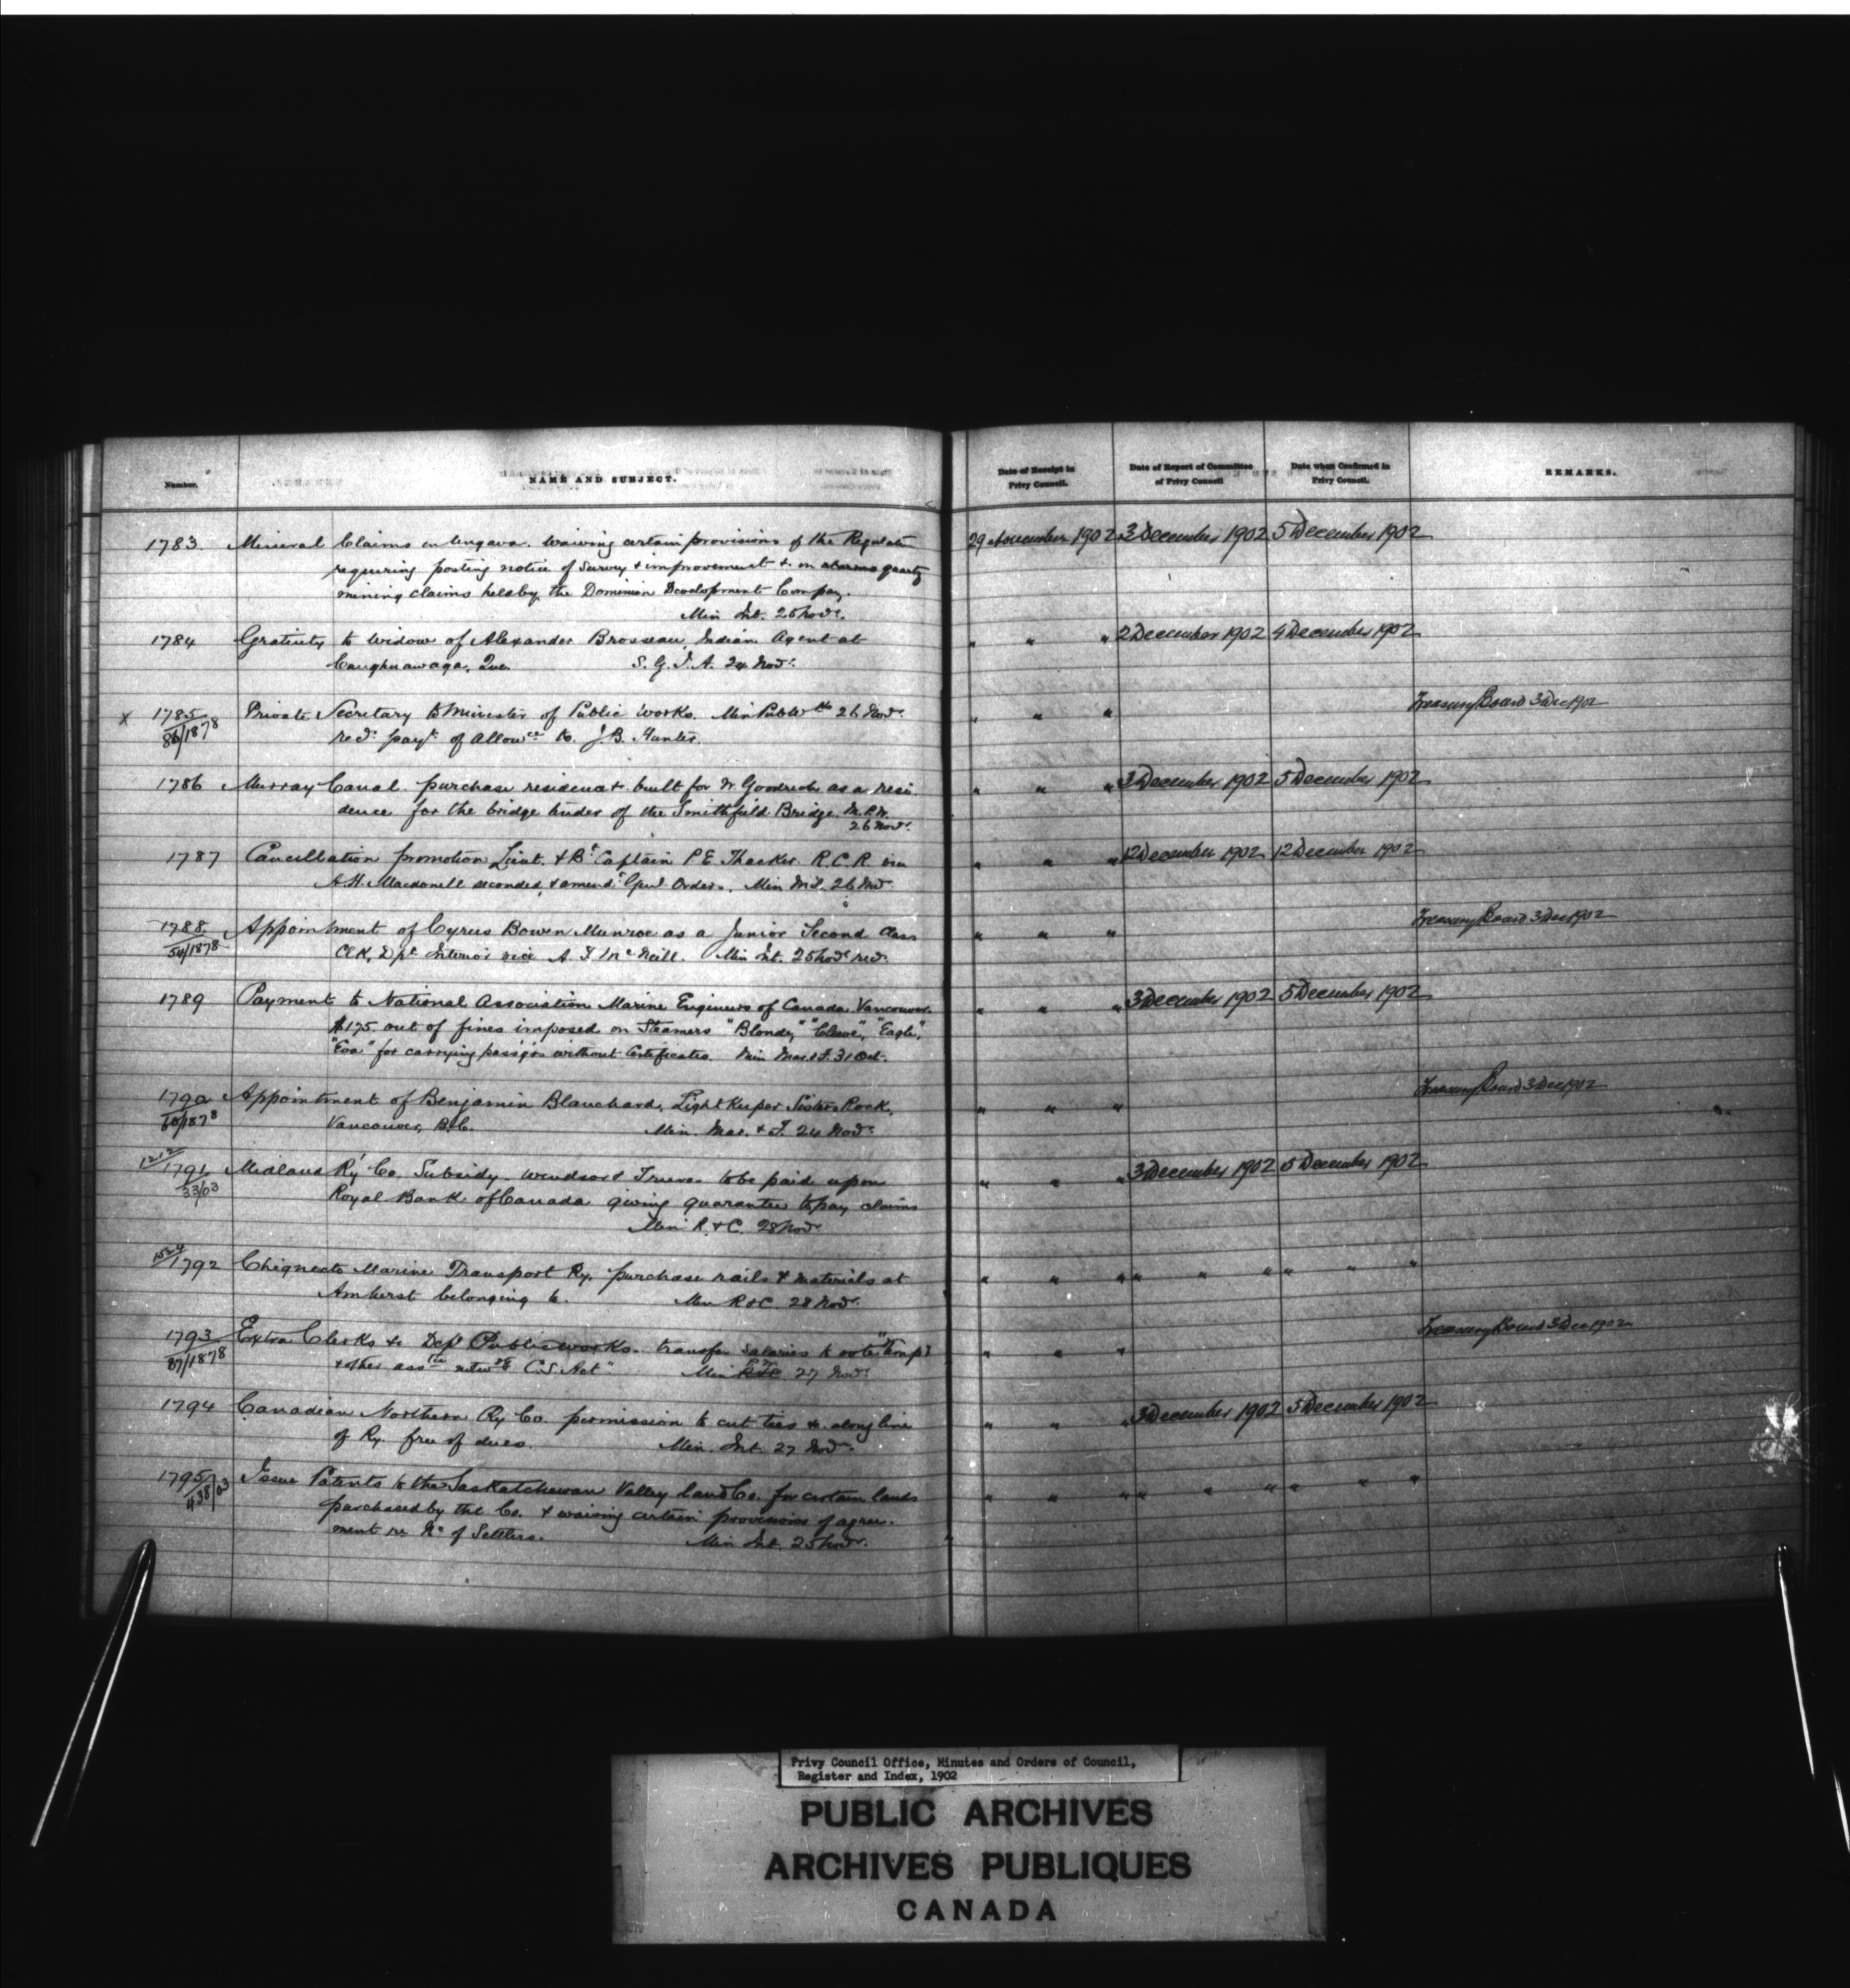 Number.
NAME AND SUBJECT.
Date of Receipt in
Privy Council.
Date of Report of Committee
of Privy Council
Date when Confirmed in
Privy Council.
REMARKS.
1783. Mineral Claims in Ungava. Waiving certain provisions of the Regulats 29 November 1902 3 December 1902 5 December 1902
requiring posting notice of Survey & improvement &c on quartz
mining claims held by the Dominion Development Company.
Min Int. 25 Novr.
1784 Gratuity to widow of Alexander Brosseau, Indian Agent at " " " 2 December 1902 4 December 1902
Caughnawaga, Que. S. G. I. A. 24 Novr.
x 1785 Private Secretary to Minister of Public Works. Min Pub Wks 26 Novr. " " " Treasury Board 3 Dec 1902
86/1878 recd. payt. of allowce to J.B. Hunter.
1786 Murray Canal. purchase residence &c built for W Goodrich as a resi " " " 3 December 1902 5 December 1902
dence for the bridge tender of the Smithfield Bridge. M.P.W.
26 Novr.
1787 Cancellation promotion Lieut. & Bt Captain P E Thacker. R.C.R. vice " " " 12 December 1902 12 December 1902
A.H. Macdonell seconded, & amendt Genl Orders. Min M.D. 26 Nov
1788 Appointment of Cyrus Bowen Munroe as a Junior Second Class " " " Treasury Board 3 Dec 1902
54/1878 Clk, Dpt Interior vice A. F. McNeill. Min Int. 25 Novr recd.
1789 Payment to National Association Marine Engineers of Canada Vancouver. " " " 3 December 1902 5 December 1902
$175 out of fines imposed on Steamers "Blonde," "Clewe," "Eagle",
"Eva" for carrying passgrs without Certificates. Min Mar. & F. 31 Oct.
1790 Appointment of Benjamin Blanchard, Light Keeper Sisters Rock, " " " Treasury Board 3 Dec 1902
60/1878 Vancouver, B.C. Min. Mar. & F. 24 Novr.
1791 Midland Ry Co. Subsidy. Windsor & Truro. to be paid upon " " " 3 December 1902 5 December 1902
33/03 Royal Bank of Canada giving guarantee to pay claims
Min R. & C. 28 Novr.
1792 Chignecto Marine Transport Ry. purchase rails & materials at " " " " " " " "
Amherst belonging to. Min R & C. 28 Novr.
1793 Extra Clerks &c Dept Public Works. transfer salaries to vote "Temp " " " Treasury Board 3 Dec 1902
87/1878 & other C.S. Act". Min 27 Novr
1794 Canadian Northern Ry Co. permission to cut ties &c along line " " " 3 December 1902 5 December 1902
of Ry. free of dues. Min. Int. 27 Novr.
1795 Issue Patents to the Saskatchewan Valley Land Co. for certain lands " " " " " " " " "
438/03 purchased by the Co. & waiving certain provisions of agree-
ment re No of Settlers. Min Int. 25 Novr.
Privy Council Office, Minutes and Orders of Council,
Register and Index, 1902
PUBLIC ARCHIVES
ARCHIVES PUBLIQUES
CANADA